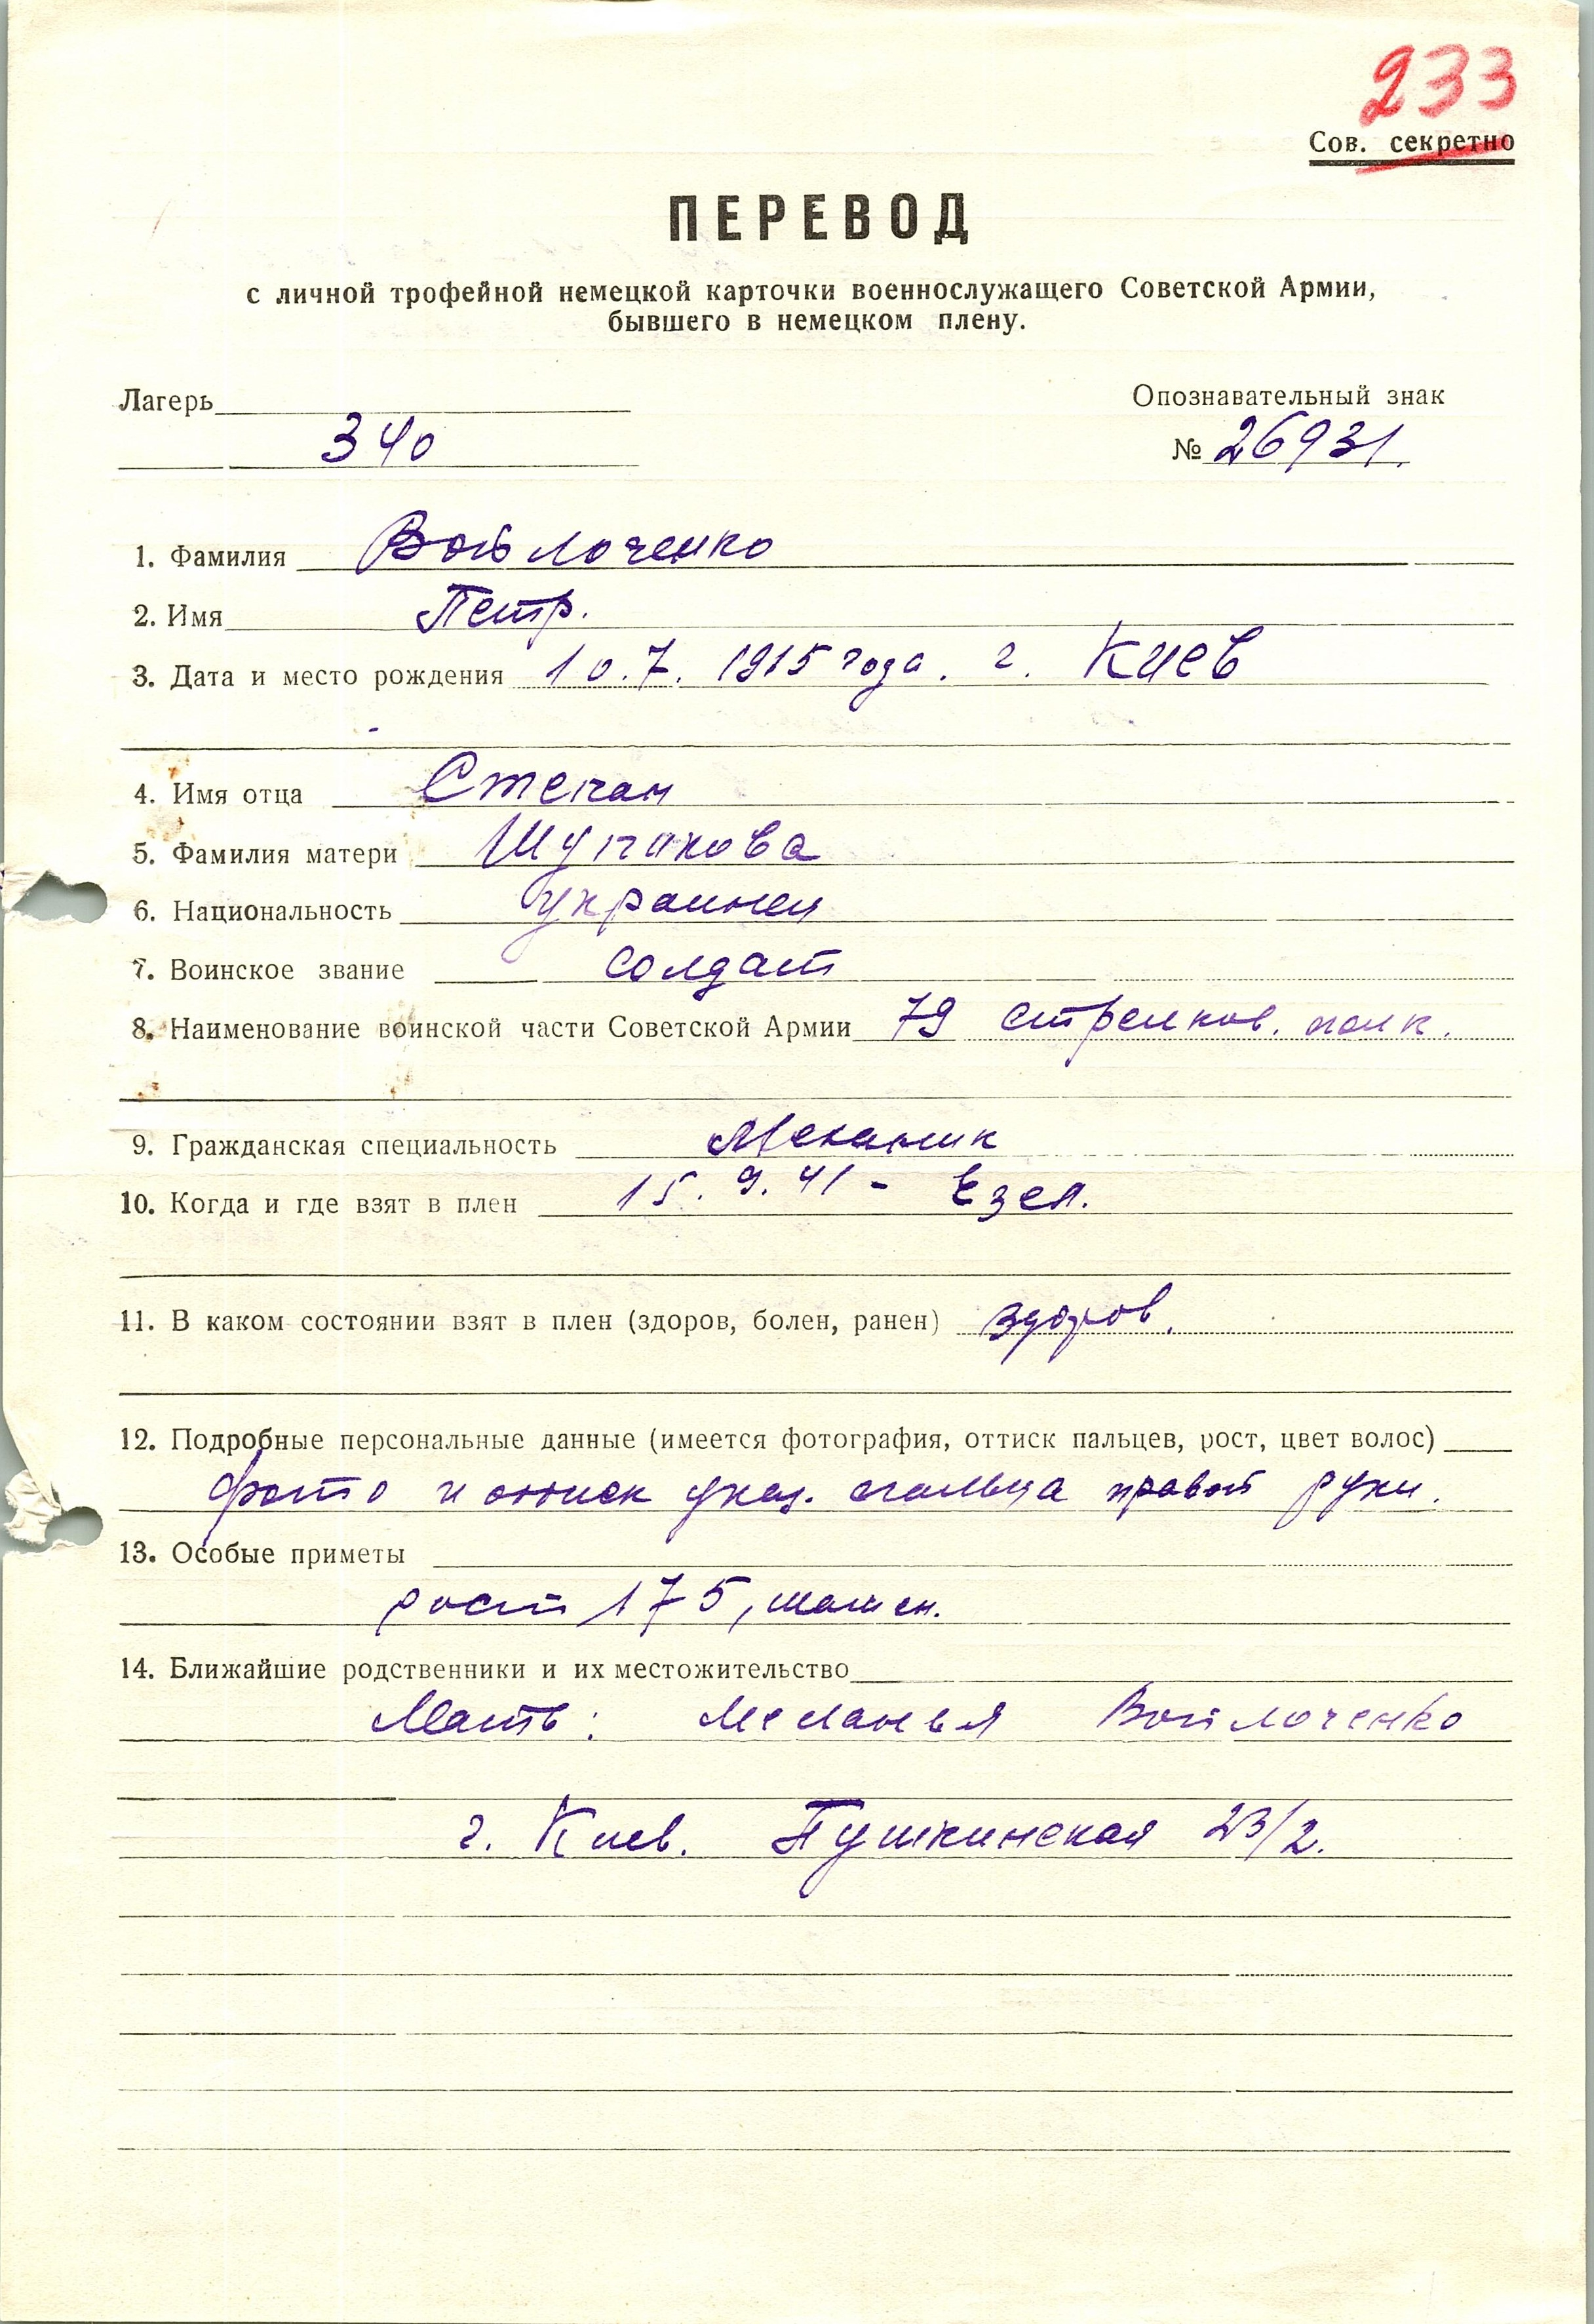 233
Сов. секретно
ПЕРЕВОД
с личной трофейной немецкой карточки военнослужащего Советской Армии,
бывшего в немецком плену.
Лагерь
340
Опознавательный знак
№ 26931.
1. Фамилия Войлоченко
2. Имя Петр.
3. Дата и место рождения 10.7. 1915 года. г. Киев
4. Имя отца Степан
5. Фамилия матери
6. Национальность украинец
7. Воинское звание солдат
8. Наименование воинской части Советской Армии 79 стрелков. полк.
9. Гражданская специальность Механик
10. Когда и где взят в плен 15. 9. 41 - Езел.
11. В каком состоянии взят в плен (здоров, болен, ранен) здоров.
12. Подробные персональные данные (имеется фотография, оттиск пальцев, рост, цвет волос)
фото и оттиск указ. пальца правой руки.
13. Особые приметы
рост 175,
14. Ближайшие родственники и их местожительство
Мать: Меланья Войлоченко
г. Киев. Пушкинская 23/2.